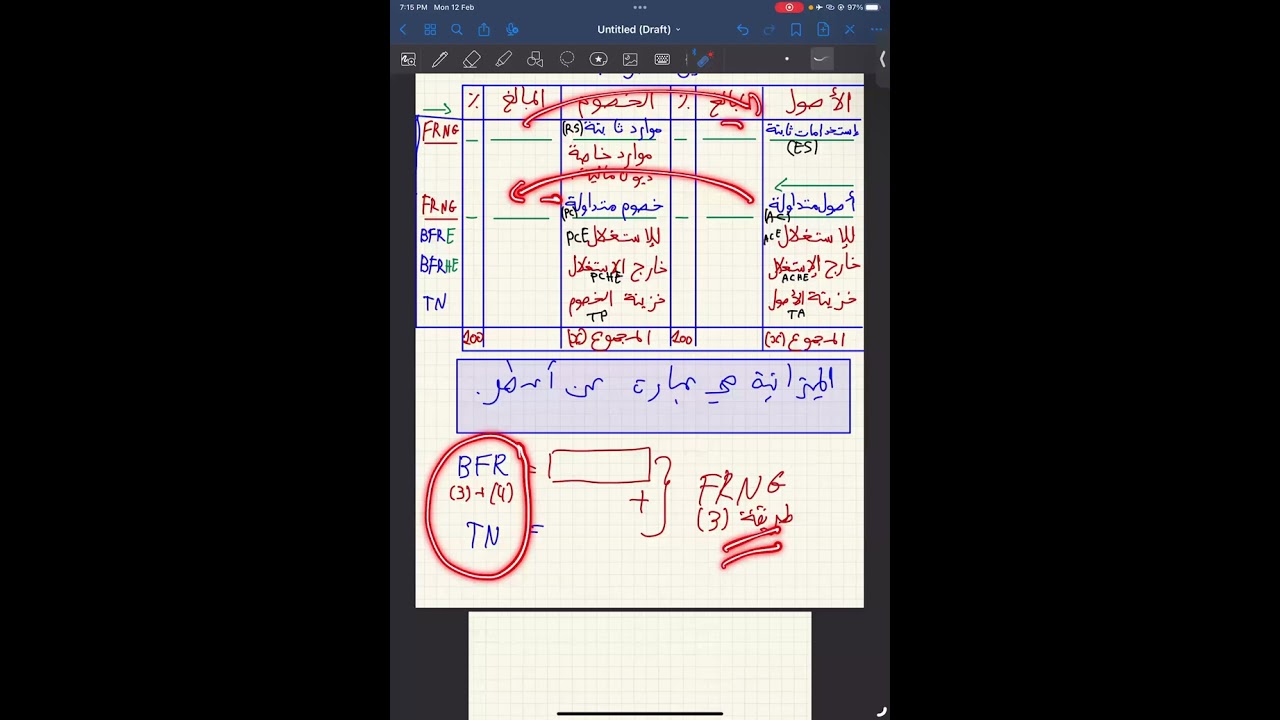 7:15 PM Mon 12 Feb 97%
Untitled (Draft)
الأصول المبالغ % الخصوم المبالغ %
إستخدامات ثابتة (ES) — — موارد ثابتة (RS) — — FRNG
موارد خاصة
ديون مالية
أصول متداولة (AC) — — خصوم متداولة (PC) — — FRNG
للإستغلال ACE للإستغلال PCE BFRE
خارج الإستغلال ACHE خارج الإستغلال PCHE BFRHE
خزينة الأصول TA خزينة الخصوم TP TN
المجموع (x) 100 المجموع (x) 100
الميزانية هي عبارة عن أشهر.
BFR =
(3)+(4)
+
TN =
FRNG
طريقة (3)